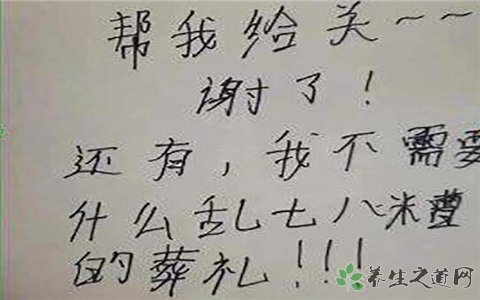 帮我给关~~
谢了！
还有，我不需要
什么乱七八米曹
的葬礼!!!
养生之道网